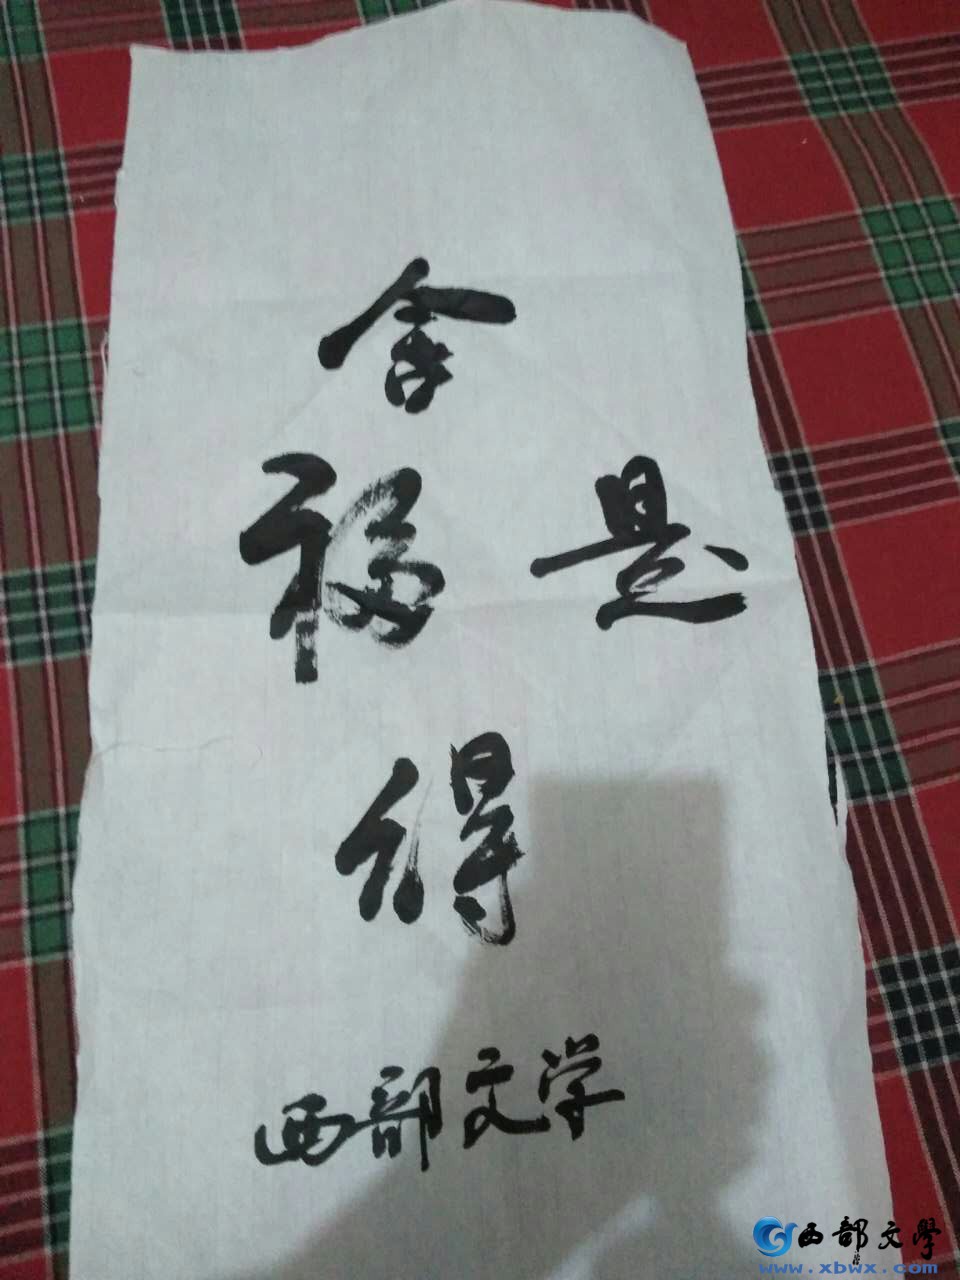 舍
福是
得
西部文学
西部文学
www.xbwx.com